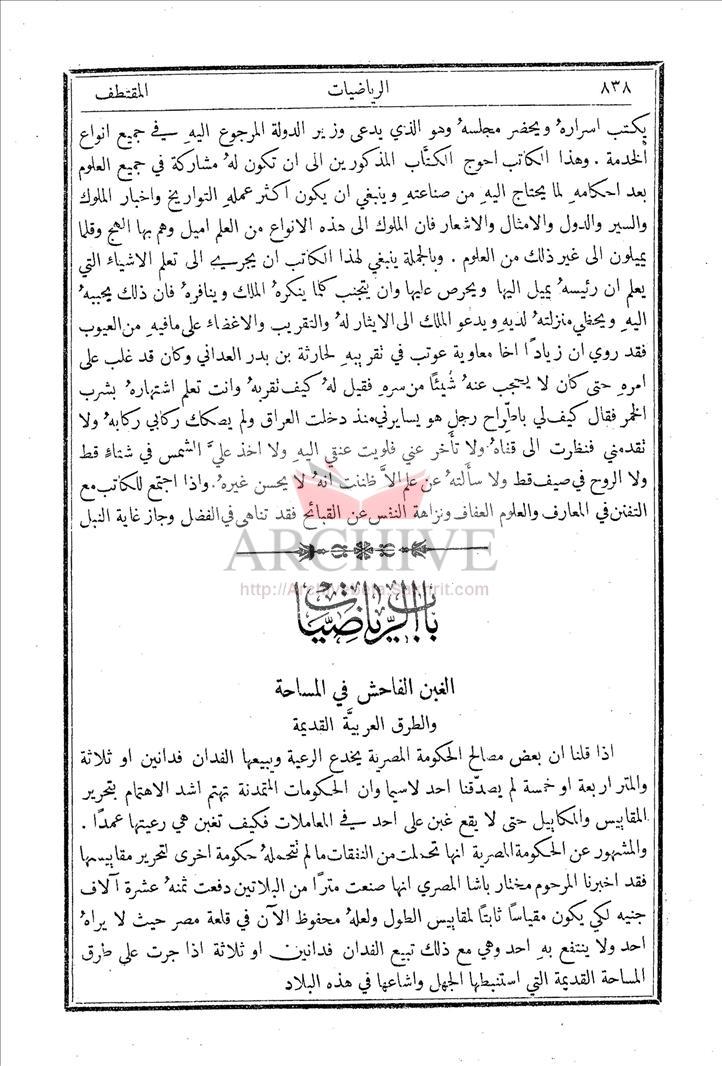 ٨٣٨ الرياضيات المقتطف
يكتب اسراره ويحضر مجلسه وهو الذي يدعى وزير الدولة المرجوع اليهِ في جميع انواع
الخدمة . وهذا الكاتب احوج الكتَّاب المذكورين الى ان تكون لهُ مشاركة في جميع العلوم
بعد احكامهِ لما يحتاج اليهِ من صناعتهِ وينبغي ان يكون اكثر عملهِ التواريخ واخبار الملوك
والسير والدول والامثال والاشعار فان الملوك الى هذه الانواع من العلم اميل وهم بها الهج وقلما
يميلون الى غير ذلك من العلوم . وبالجملة ينبغي لهذا الكاتب ان يجري الى تعلم الاشياء التي
يعلم ان رئيسهُ يميل اليها ويحرص عليها وان يتجنب كلما ينكرهُ الملك وينافرهُ فان ذلك يحببهُ
اليهِ ويحظي منزلتهُ لديهِ ويدعو الملك الى الايثار لهُ والتقريب والاغضاء على ما فيهِ من العيوب
فقد روي ان زيادًا اخا معاوية عوتب في تقريبهِ لحارثة بن بدر العداني وكان قد غلب على
امرهِ حتى كان لا يحجب عنهُ شيئًا من سرهِ فقيل لهُ كيف نقربهُ وانت تعلم اشتهارهُ بشرب
الخمر فقال كيف لي باطّراح رجل هو يسايرني منذ دخلت العراق ولم يصكك ركابي ركابهُ ولا
تقدمني فنظرت الى قفاهُ ولا تأخر عني فلويت عنقي اليهِ ولا اخذ عليَّ الشمس في شتاءٍ قط
ولا الروح في صيف قط ولا سألتهُ عن علم الاَّ ظننت انهُ لا يحسن غيرهُ . واذا اجتمع للكاتب مع
التفنن في المعارف والعلوم العفاف ونزاهة النفس عن القبائح فقد تناهى في الفضل وجاز غاية النبل
ARCHIVE
http://Archivebeta.Sakhrit.com
باب الرياضيات
الغبن الفاحش في المساحة
والطرق العربيَّة القديمة
اذا قلنا ان بعض مصالح الحكومة المصرية يخدع الرعية ويبيعها الفدان فدانين او ثلاثة
والمتر اربعة او خمسة لم يصدّقنا احد لاسيما وان الحكومات المتمدنة تهتم اشد الاهتمام بتحرير
المقاييس والمكاييل حتى لا يقع غبن على احد في المعاملات فكيف تغبن هي رعيتها عمدًا .
والمشهور عن الحكومة المصرية انها تحملت من النفقات ما لم تتحملهُ حكومة اخرى لتحرير مقاييسها
فقد اخبرنا المرحوم مختار باشا المصري انها صنعت مترًا من البلاتين دفعت ثمنهُ عشرة آلاف
جنيه لكي يكون مقياسًا ثابتًا لمقاييس الطول ولعلهُ محفوظ الآن في قلعة مصر حيث لا يراهُ
احد ولا ينتفع بهِ احد وهي مع ذلك تبيع الفدان فدانين او ثلاثة اذا جرت على طرق
المساحة القديمة التي استنبطها الجهل واشاعها في هذه البلاد